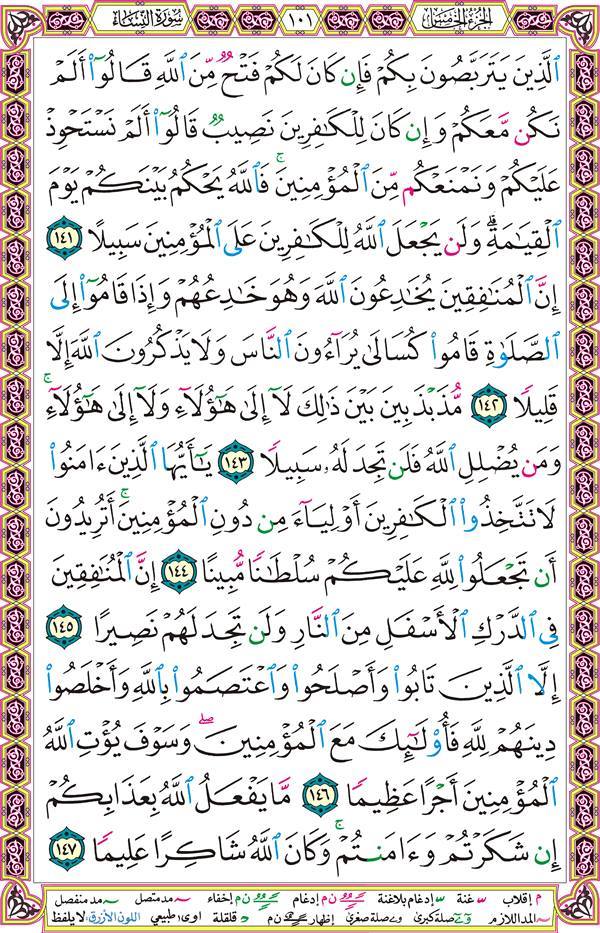 الجزء الخامس
١٠١
سورة النساء
ٱلَّذِينَ يَتَرَبَّصُونَ بِكُمْ فَإِن كَانَ لَكُمْ فَتْحٌ مِّنَ ٱللَّهِ قَالُوٓا۟ أَلَمْ
نَكُن مَّعَكُمْ وَإِن كَانَ لِلْكَٰفِرِينَ نَصِيبٌ قَالُوٓا۟ أَلَمْ نَسْتَحْوِذْ
عَلَيْكُمْ وَنَمْنَعْكُم مِّنَ ٱلْمُؤْمِنِينَ ۚ فَٱللَّهُ يَحْكُمُ بَيْنَكُمْ يَوْمَ
ٱلْقِيَٰمَةِ ۗ وَلَن يَجْعَلَ ٱللَّهُ لِلْكَٰفِرِينَ عَلَى ٱلْمُؤْمِنِينَ سَبِيلًا ١٤١
إِنَّ ٱلْمُنَٰفِقِينَ يُخَٰدِعُونَ ٱللَّهَ وَهُوَ خَٰدِعُهُمْ وَإِذَا قَامُوٓا۟ إِلَى
ٱلصَّلَوٰةِ قَامُوا۟ كُسَالَىٰ يُرَآءُونَ ٱلنَّاسَ وَلَا يَذْكُرُونَ ٱللَّهَ إِلَّا
قَلِيلًا ١٤٢ مُّذَبْذَبِينَ بَيْنَ ذَٰلِكَ لَآ إِلَىٰ هَٰٓؤُلَآءِ وَلَآ إِلَىٰ هَٰٓؤُلَآءِ ۚ
وَمَن يُضْلِلِ ٱللَّهُ فَلَن تَجِدَ لَهُۥ سَبِيلًا ١٤٣ يَٰٓأَيُّهَا ٱلَّذِينَ ءَامَنُوا۟
لَا تَتَّخِذُوا۟ ٱلْكَٰفِرِينَ أَوْلِيَآءَ مِن دُونِ ٱلْمُؤْمِنِينَ ۚ أَتُرِيدُونَ
أَن تَجْعَلُوا۟ لِلَّهِ عَلَيْكُمْ سُلْطَٰنًا مُّبِينًا ١٤٤ إِنَّ ٱلْمُنَٰفِقِينَ
فِى ٱلدَّرْكِ ٱلْأَسْفَلِ مِنَ ٱلنَّارِ وَلَن تَجِدَ لَهُمْ نَصِيرًا ١٤٥
إِلَّا ٱلَّذِينَ تَابُوا۟ وَأَصْلَحُوا۟ وَٱعْتَصَمُوا۟ بِٱللَّهِ وَأَخْلَصُوا۟
دِينَهُمْ لِلَّهِ فَأُو۟لَٰٓئِكَ مَعَ ٱلْمُؤْمِنِينَ ۖ وَسَوْفَ يُؤْتِ ٱللَّهُ
ٱلْمُؤْمِنِينَ أَجْرًا عَظِيمًا ١٤٦ مَّا يَفْعَلُ ٱللَّهُ بِعَذَابِكُمْ
إِن شَكَرْتُمْ وَءَامَنتُمْ ۚ وَكَانَ ٱللَّهُ شَاكِرًا عَلِيمًا ١٤٧
م إقلاب غنة إدغام بلاغنة ن م إدغام ن م إخفاء مد متصل مد منفصل
المد اللازم صلة كبرى صلة صغرى إظهار ن م قلقلة اوى طبيعي اللون الأزرق: لا يلفظ